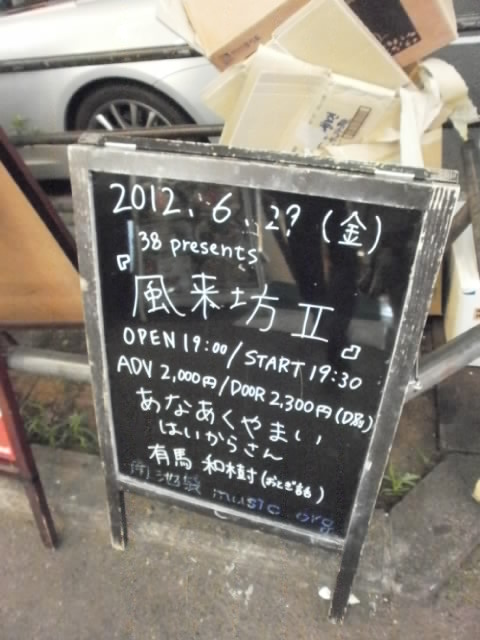 2012. 6. 29 (金)
38 presents
『風来坊 II』
OPEN 19:00/START 19:30
ADV 2,000円/DOOR 2,300円(D別)
あなあくやまい
はいからさん
有馬 和樹(おとぎ話)
@池袋 music org